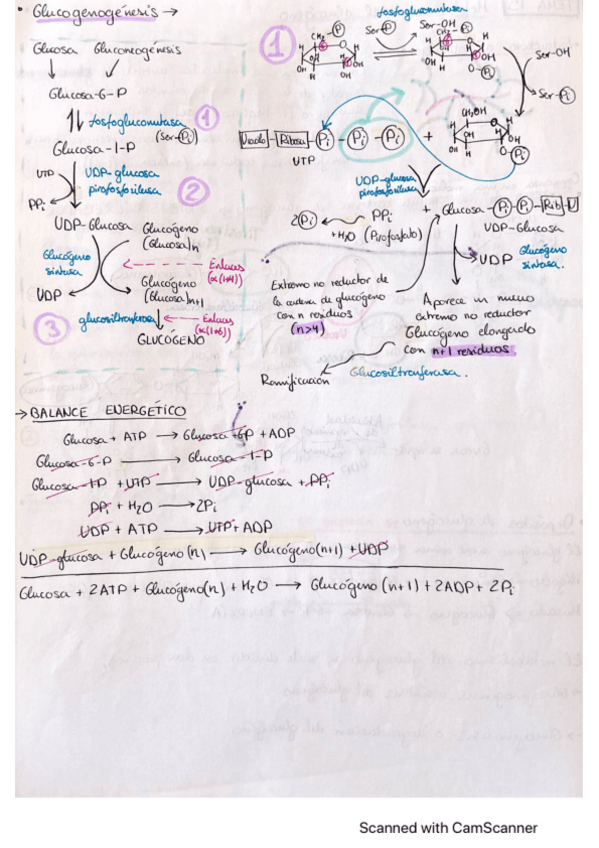 • Glucogenogénesis →
Glucosa Gluconeogénesis
Glucosa-6-P
fosfoglucomutasa 1
(Ser-Pi)
Glucosa-1-P
UTP UDP-glucosa
pirofosforilasa
PPi 2
UDP-Glucosa Glucógeno
(Glucosa)n
Glucógeno
sintasa
Enlaces
(α(1→4))
UDP Glucógeno
(Glucosa)n+1
3 glucosiltransferasa Enlaces
(α(1→6))
GLUCÓGENO
1
fosfoglucomutasa
Ser-Pi Ser-OH
CH2-O-Pi
Ser-OH
Ser-Pi
CH2OH
Uracilo-Ribosa-Pi-Pi-Pi +
UTP
UDP-glucosa
pirofosforilasa
2Pi PPi + Glucosa-Pi-Pi-Rib-U
+H2O (Pirofosfato) UDP-Glucosa
UDP Glucógeno
sintasa.
Extremo no reductor de
la cadena de glucógeno
con n residuos
(n>4)
Aparece un nuevo
extremo no reductor
Glucógeno elongado
con n+1 residuos
Ramificación Glucosiltransferasa.
→ BALANCE ENERGÉTICO
Glucosa + ATP → Glucosa-6P + ADP
Glucosa-6-P → Glucosa-1-P
Glucosa-1P + UTP → UDP-glucosa + PPi
PPi + H2O → 2Pi
UDP + ATP → UTP + ADP
UDP-glucosa + Glucógeno(n) → Glucógeno(n+1) + UDP
Glucosa + 2ATP + Glucógeno(n) + H2O → Glucógeno (n+1) + 2ADP + 2Pi
Scanned with CamScanner